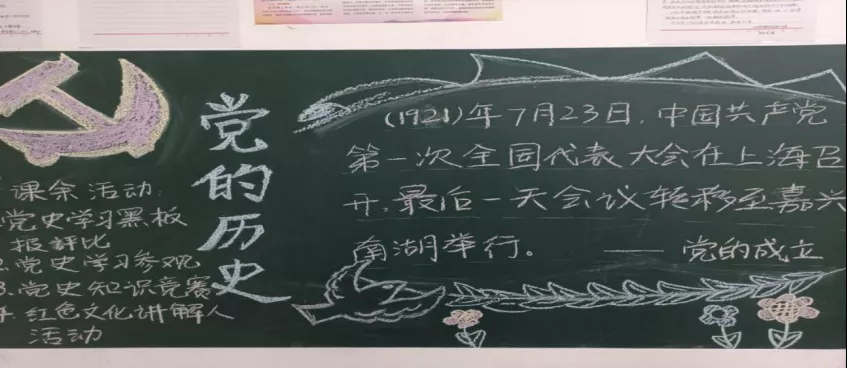 党的历史
课余活动:
党史学习黑板
报评比
2.党史学习参观
3.党史知识竞赛
4.红色文化讲解人
活动
(1921)年7月23日,中国共产党
第一次全国代表大会在上海召
开,最后一天会议转移至嘉兴
南湖举行。 ——党的成立